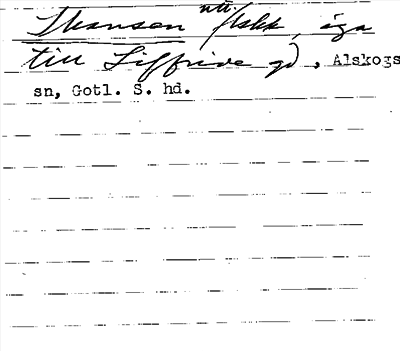 Skansen utt. flskk, äga
till Liffride gd, Alskogs
sn, Gotl. S. hd.